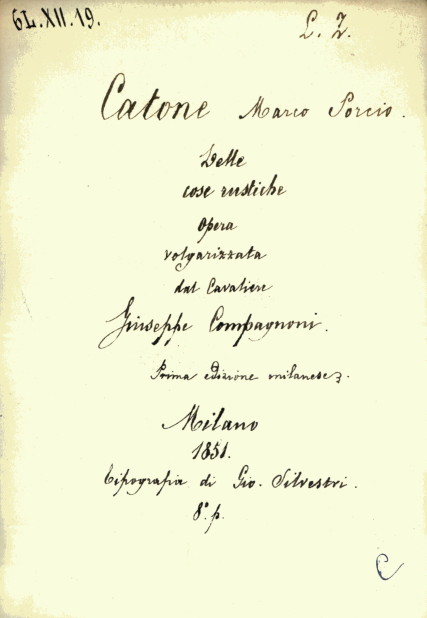 6L.XII.19.
L. Z.
Catone Marco Porcio.
Delle
cose rustiche
Opera
volgarizzata
dal Cavaliere
Giuseppe Compagnoni.
Prima edizione milanese.
Milano
1851.
Tipografia di Gio. Silvestri.
8.° p.
C